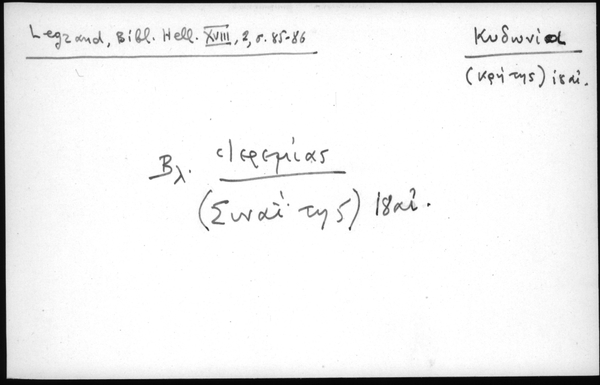 Legrand, Bibl. Hell. XVIII, 2, σ. 85-86
Κυδωνία
(Κρήτης) 18 αἰ.
Βλ. Ἱερεμίας
(Συναΐτης) 18 αἰ.